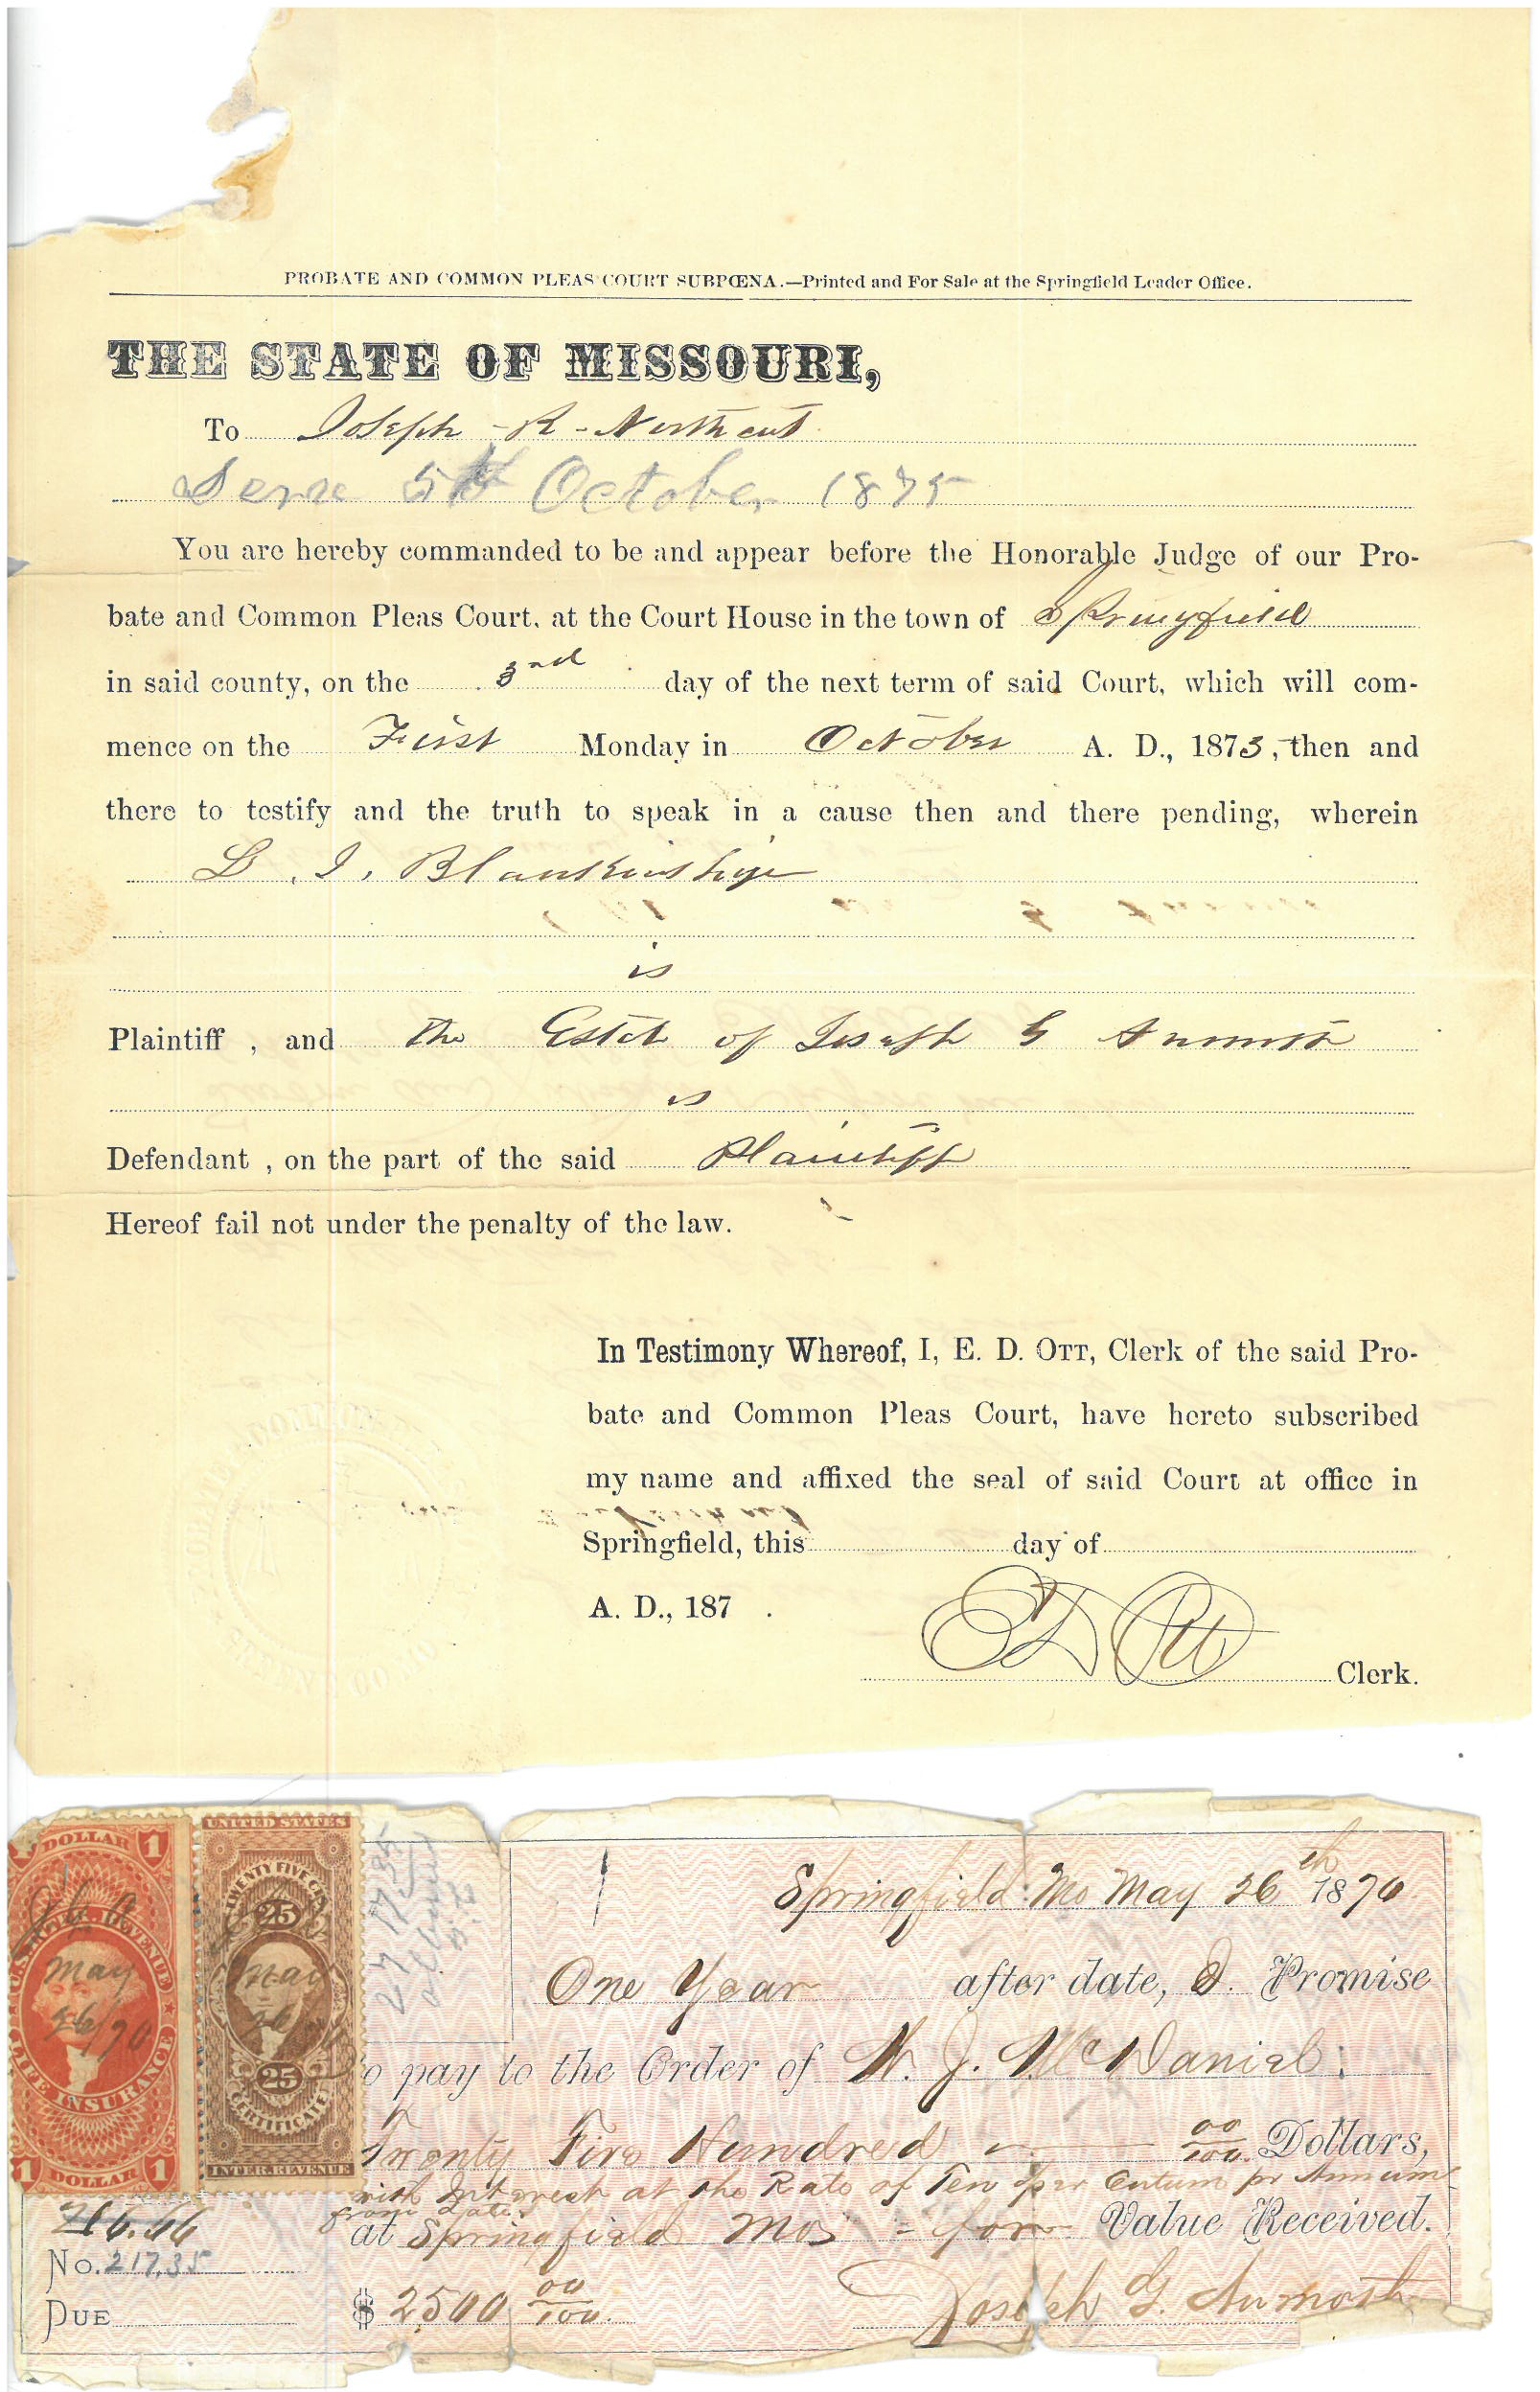 PROBATE AND COMMON PLEAS COURT SUBPŒNA.—Printed and For Sale at the Springfield Leader Office.
THE STATE OF MISSOURI,
To Joseph - R - Northcut
Serve 5th October 1875
You are hereby commanded to be and appear before the Honorable Judge of our Pro-
bate and Common Pleas Court, at the Court House in the town of Springfield
in said county, on the 3rd day of the next term of said Court, which will com-
mence on the First Monday in October A. D., 1873, then and
there to testify and the truth to speak in a cause then and there pending, wherein
L. I. Blankinship
is
Plaintiff , and the Estate of Joseph G
is
Defendant , on the part of the said Plaintiff
Hereof fail not under the penalty of the law.
In Testimony Whereof, I, E. D. OTT, Clerk of the said Pro-
bate and Common Pleas Court, have hereto subscribed
my name and affixed the seal of said Court at office in
Springfield, this day of
A. D., 187 .
E D Ott Clerk.
1 DOLLAR 1
U.S. INTER. REVENUE
May
26/70
LIFE INSURANCE
1 DOLLAR 1
UNITED STATES
TWENTY FIVE CTS
25
May
26
25
CERTIFICATE
INTER. REVENUE
217.35
allowed
Springfield Mo May 26th 1870
One Year after date, I Promise
to pay to the Order of W. J. McDaniel
Twenty Five Hundred 00/100 Dollars,
with Interest at the Rate of Ten per Centum pr Annum
from date
at Springfield Mo - for Value Received.
No. 217.35
DUE
$ 2500 00/100
Joseph G. Armost